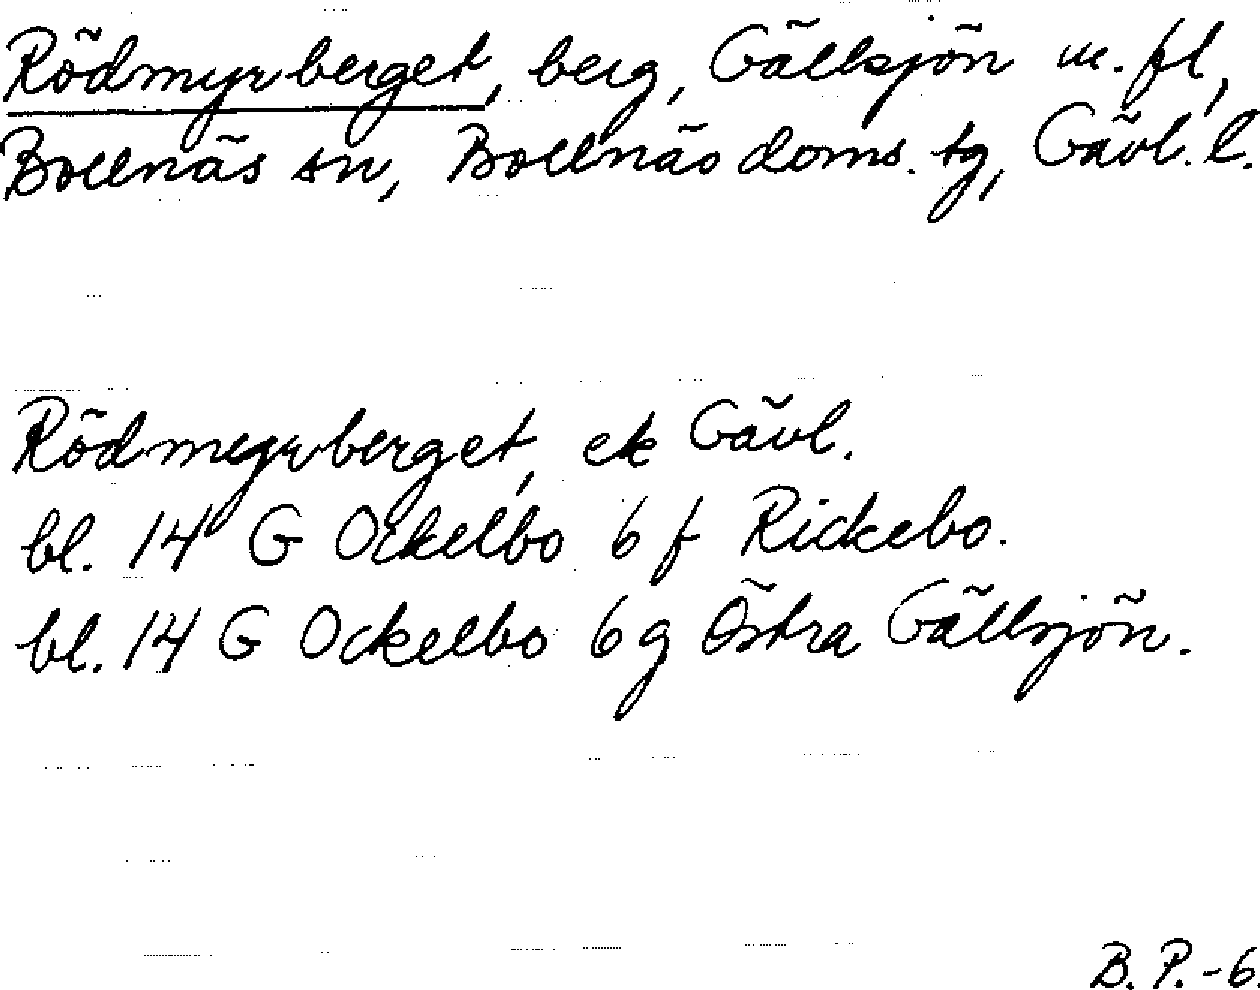 Rödmyrberget, berg, Gällsjön m. fl,
Bollnäs sn, Bollnäs doms. tg, Gävl. l.
Rödmyrberget, ek Gävl.
bl. 14 G Ockelbo 6 f Rickebo.
bl. 14 G Ockelbo 6 g Östra Gällsjön.
B. P. - 6